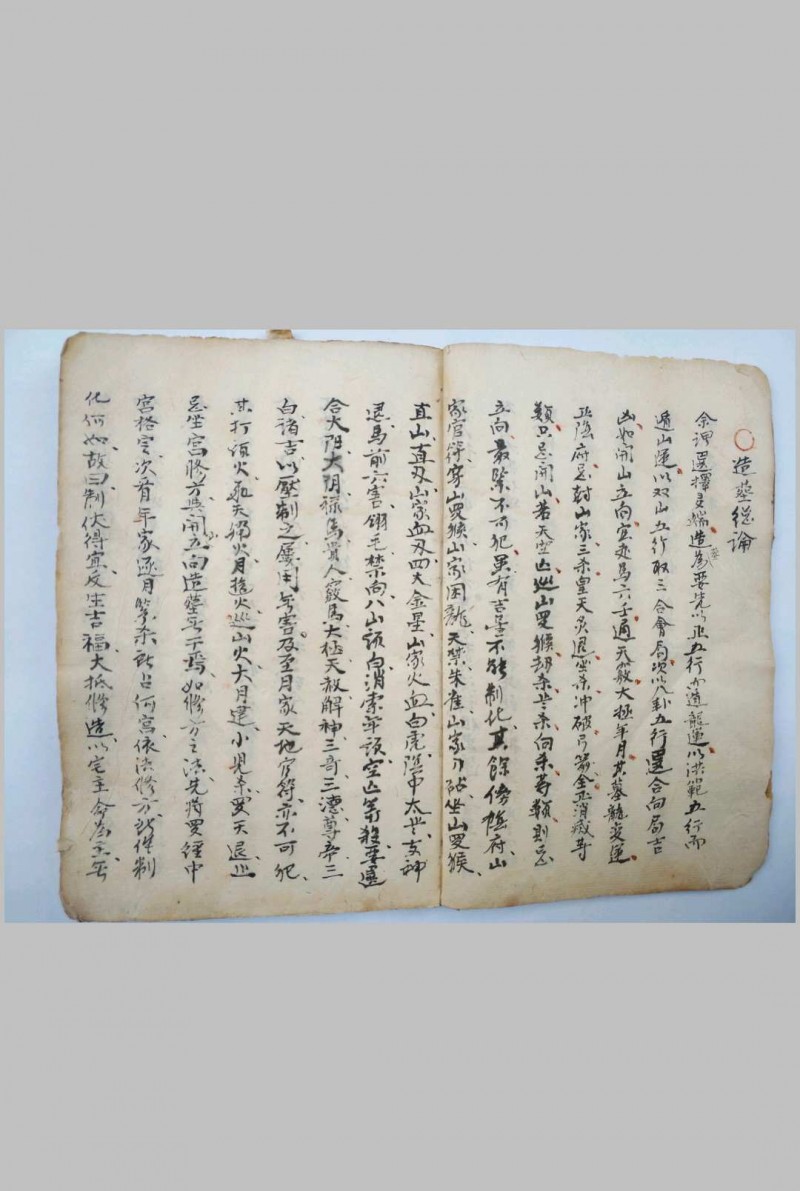 造葬總論
余謂選擇多端造葬為要先以正五行而遁龍運以洪範五行而
遁山運以双山五行取三合會局次以八卦五行選合向局吉
凶如開山立向宜走馬六壬通天竅大極年月其墓龍变運
正陰府忌封山家三杀皇天炙退冲破弓箭金正消滅等
類只忌開山若天空亡巡山羅猴劫杀向杀等類則忌
立向最紧不可犯虽有吉星不能制化其餘傍陰府山
家官符穿山羅猴山家困龍天禁朱雀山家刀砧坐山羅猴
直山直刃山家血刃四大金星山家火血白虎隐中太岁
退馬前六害翎毛禁向八山頭白消索年頭空亡等殺要選
合太阳太阴禄馬貴人竅馬太極天赦解神三奇三德尊帝三
白诸吉以壓制之屡用無害及至月家天地官符亦不可犯
其打頭火飛天獨火月遊火巡山火大月建小兒杀要天退並
忌坐宮修方與開山立向造葬無干焉如修方之法先将羅經中
宮格定次看年家逐月等杀所占何宮依法修方所供制
化何如故曰制伏得宜反生吉福大抵修造以宅主命為主